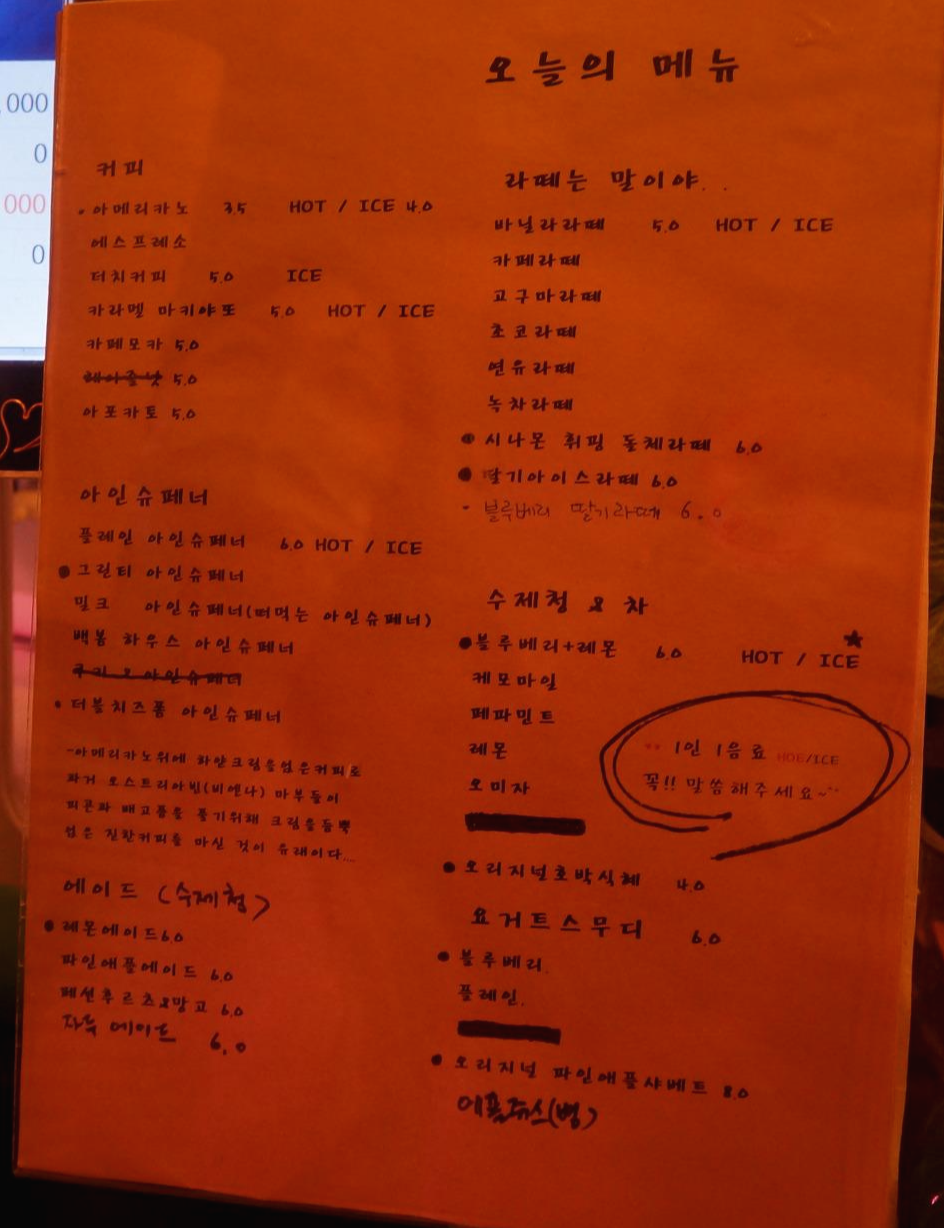 ,000
0
000
0
오늘의 메뉴
커피
아메리카노 3.5 HOT / ICE 4.0
에스프레소
더치커피 5.0 ICE
카라멜 마키야또 5.0 HOT / ICE
카페모카 5.0
헤이즐넛 5.0
아포카토 5.0
아인슈페너
플레인 아인슈페너 6.0 HOT / ICE
그린티 아인슈페너
밀크 아인슈페너(떠먹는 아인슈페너)
백봄 하우스 아인슈페너
쿠키 오 아인슈페너
더블치즈퐁 아인슈페너
-아메리카노위에 하얀크림을얹은커피로
과거 오스트리아빈(비엔나) 마부들이
피곤과 배고픔을 풀기위해 크림을듬뿍
얹은 진한커피를 마신 것이 유래이다...
에이드 (수제청)
레몬에이드6.0
파인애플에이드 6.0
페션후르츠&망고 6.0
자두 에이드 6.0
라떼는 말이야..
바닐라라떼 5.0 HOT / ICE
카페라떼
고구마라떼
초코라떼
연유라떼
녹차라떼
시나몬 휘핑 돌체라떼 6.0
딸기아이스라떼 6.0
- 블루베리 딸기라떼 6.0
수제청 & 차
블루베리+레몬 6.0 HOT / ICE
케모마일
페파민트
레몬
오미자
1인 1음료 HOE/ICE
꼭!! 말씀해주세요~
오리지널호박식혜 4.0
요거트스무디 6.0
블루베리.
플레인.
오리지널 파인애플샤베트 8.0
애플쥬스(병)